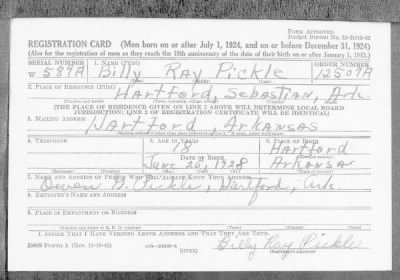 FORM APPROVED.
REGISTRATION CARD (Men born on or after July 1, 1924, and on or before December 31, 1924)
(Also for the registration of men as they reach the 18th anniversary of the date of their birth on or after January 1, 1943.)
SERIAL NUMBER 1. NAME (Print) ORDER NUMBER
W 589A Billy Ray Pickle 12507A
2. PLACE OF RESIDENCE (Print)
Hartford, Sebastian, Ark.
[THE PLACE OF RESIDENCE GIVEN ON LINE 2 ABOVE WILL DETERMINE LOCAL BOARD
JURISDICTION; LINE 2 OF REGISTRATION CERTIFICATE WILL BE IDENTICAL]
3. MAILING ADDRESS
Hartford, Arkansas
4. TELEPHONE 5. AGE IN YEARS 6. PLACE OF BIRTH
18 Hartford
DATE OF BIRTH
June 20, 1928 Arkansas
7. NAME AND ADDRESS OF PERSON WHO WILL ALWAYS KNOW YOUR ADDRESS
Pickle, Hartford, Ark.
8. EMPLOYER'S NAME AND ADDRESS
9. PLACE OF EMPLOYMENT OR BUSINESS
I AFFIRM THAT I HAVE VERIFIED ABOVE ANSWERS AND THAT THEY ARE TRUE.
DSS Form 1 (Rev. 11-16-42) (OVER) Billy Ray Pickle